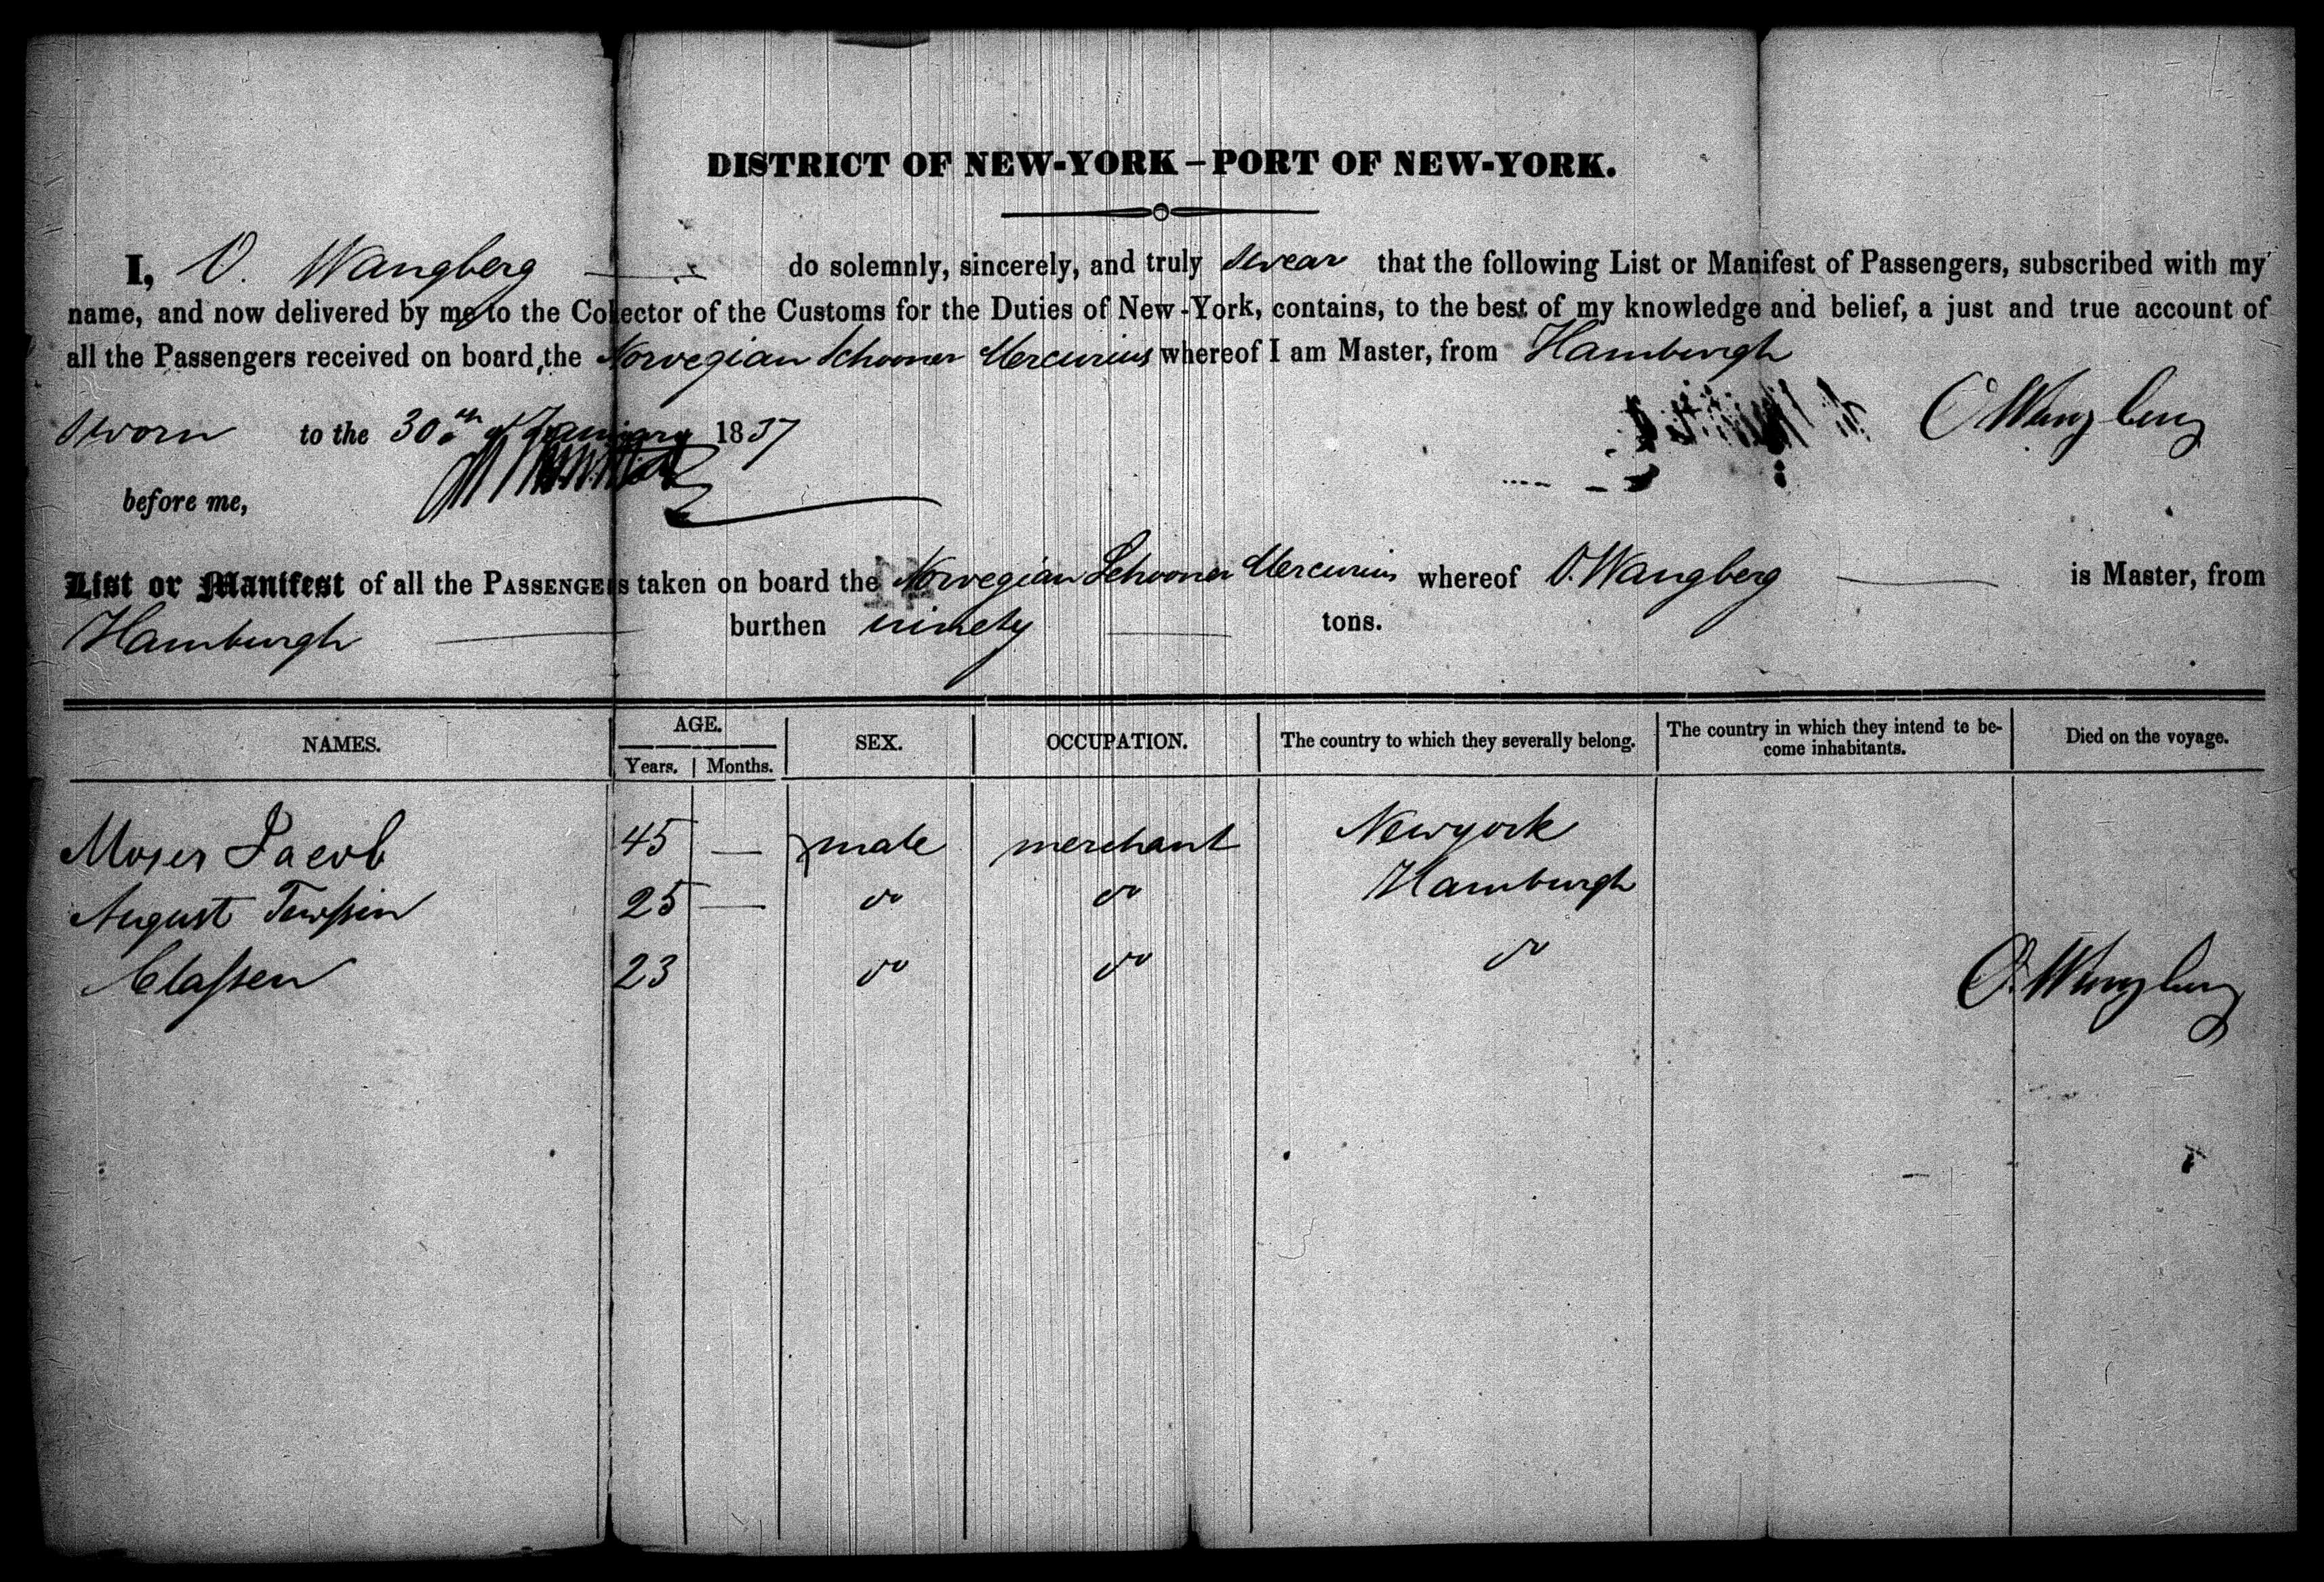 DISTRICT OF NEW-YORK – PORT OF NEW-YORK.
I, O. Wangberg do solemnly, sincerely, and truly swear that the following List or Manifest of Passengers, subscribed with my
name, and now delivered by me to the Collector of the Customs for the Duties of New-York, contains, to the best of my knowledge and belief, a just and true account of
all the Passengers received on board, the Norvegian Schooner Mercurius whereof I am Master, from Hamburgh
Sworn to the 30th of January 1837 O Wangberg
before me,
List or Manifest of all the PASSENGERS taken on board the Norvegian Schooner Mercurius whereof O. Wangberg is Master, from
Hamburgh burthen ninety tons.
NAMES. AGE. SEX. OCCUPATION. The country to which they severally belong. The country in which they intend to be- Died on the voyage.
Years. Months. come inhabitants.
Moses Jacob 45 — male merchant Newyork
August 25 — do do Hamburgh
Classen 23 do do do
O. Wangberg